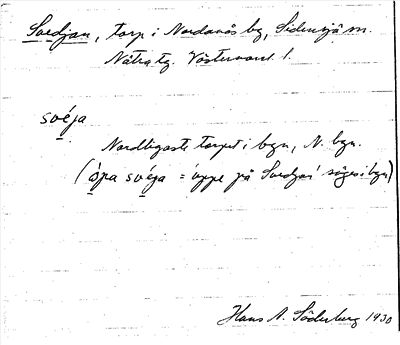 Svedjan, torp i Nordanås by, Sidensjö sn.
Nätra tg. Västernorrl. l.
svéja
Nordligaste torpet i byn, N. byn.
(ȯpa svéja = 'uppe på Svedjan' säges i byn)
Hans A. Söderberg 1930